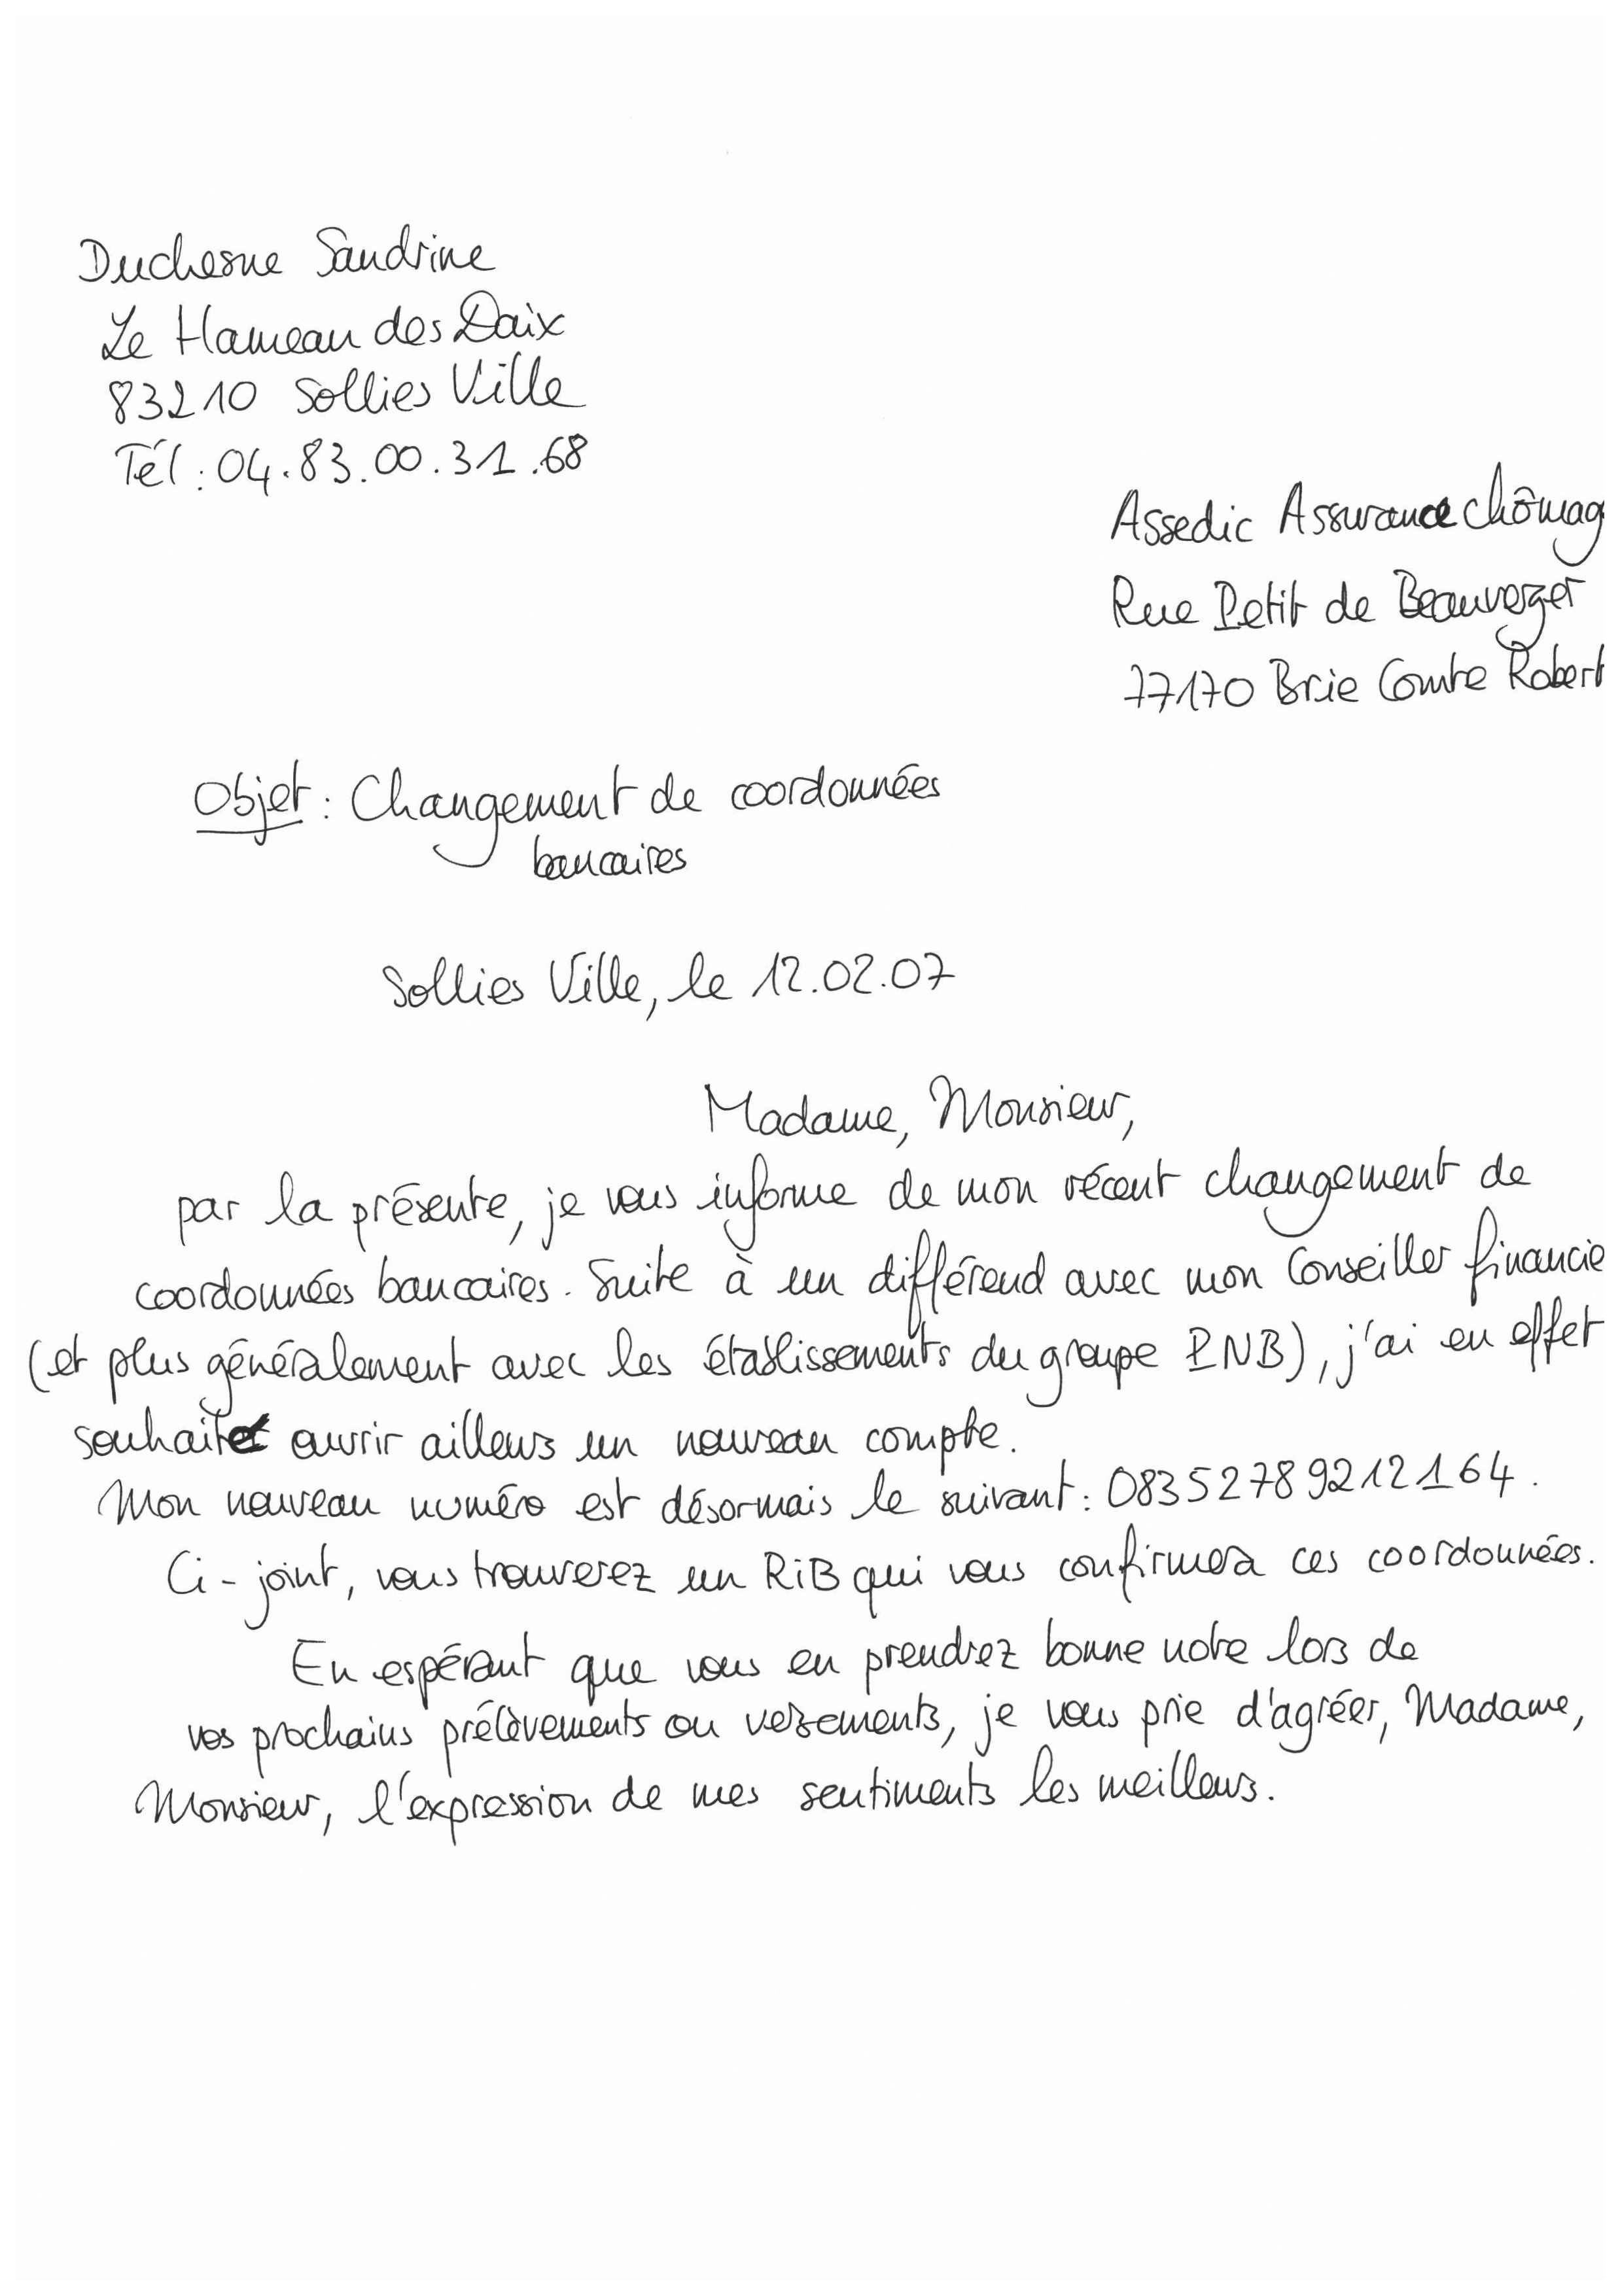 Duchesne Sandrine
Le Hameau des Daix
83210 Sollies Ville
Tél : 04.83.00.31.68
Assedic Assurance chômag
Rue Petit de Beauverger
77170 Brie Comte Robert
Objet : Changement de coordonnées
bancaires
Sollies Ville, le 12.02.07
Madame, Monsieur,
par la présente, je vous informe de mon récent changement de
coordonnées bancaires. Suite à un différend avec mon Conseiller financie
(et plus généralement avec les établissements du groupe PNB), j'ai en effet
souhaité ouvrir ailleurs un nouveau compte.
Mon nouveau numéro est désormais le suivant : 08352789212164.
Ci-joint, vous trouverez un RiB qui vous confirmera ces coordonnées.
En espérant que vous en prendrez bonne note lors de
vos prochains prélèvements ou versements, je vous prie d'agréer, Madame,
Monsieur, l'expression de mes sentiments les meilleurs.